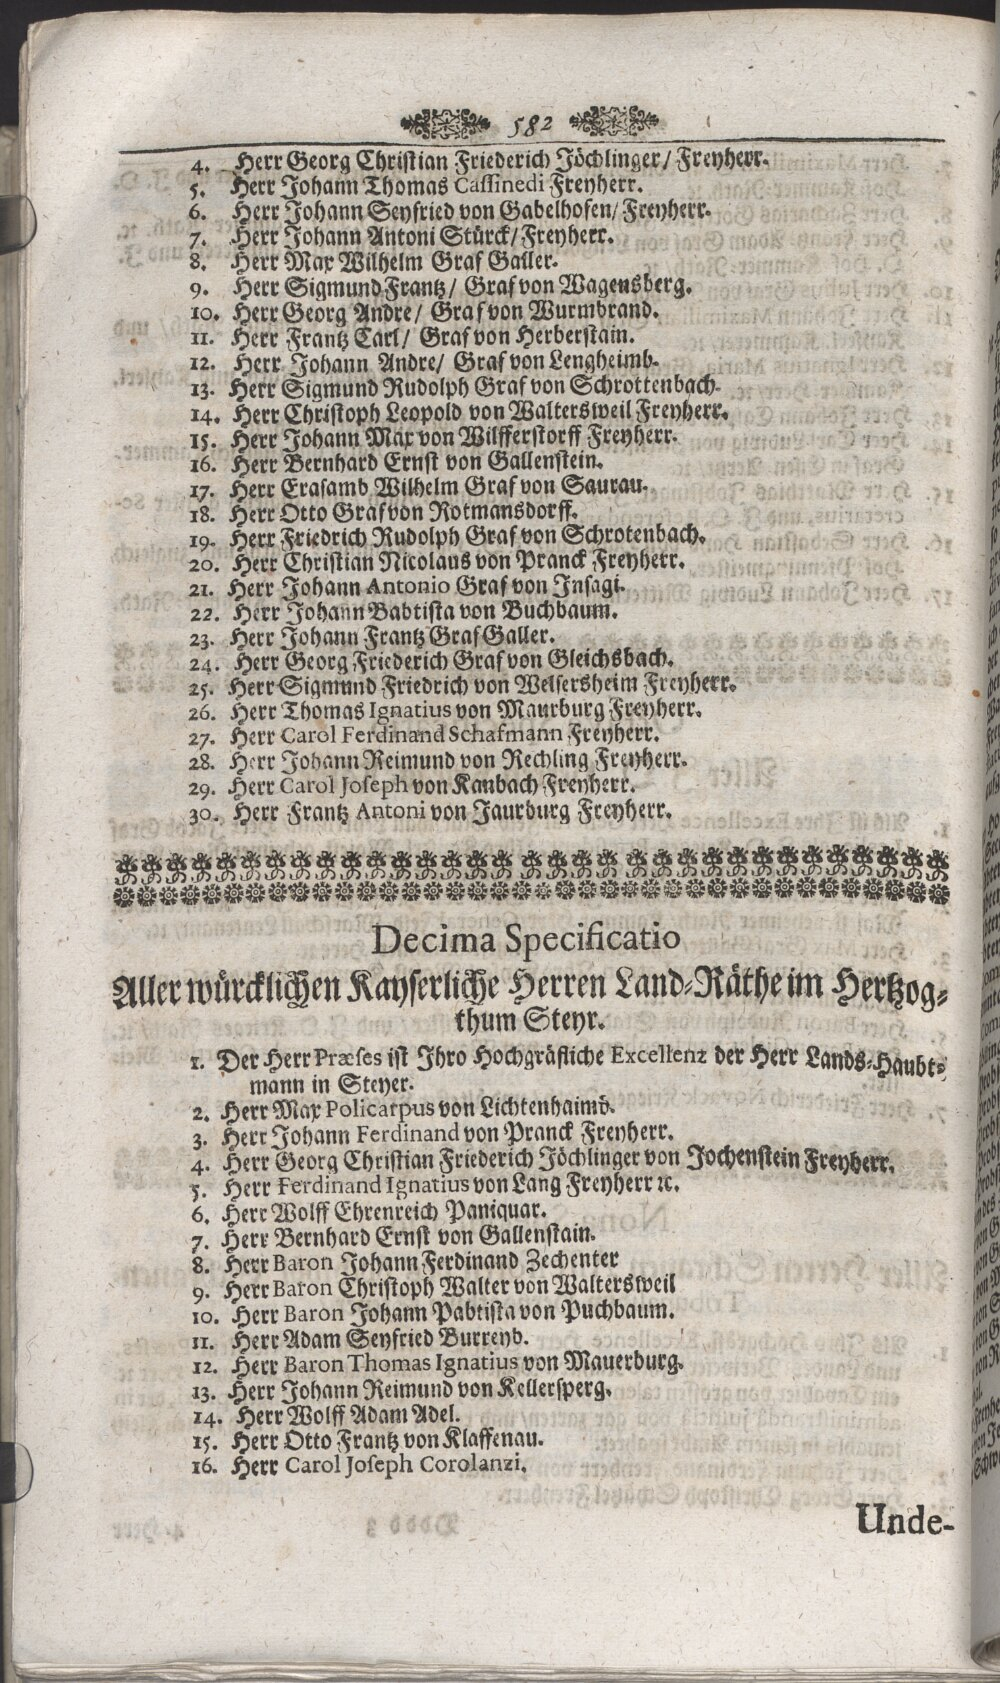 582
4. Herr Georg Christian Friederich Jöchlinger/ Freyherr.
5. Herr Johann Thomas Cassinedi Freyherr.
6. Herr Johann Seyfried von Gabelhofen/ Freyherr.
7. Herr Johann Antoni Stürck/ Freyherr.
8. Herr Max Wilhelm Graf Galler.
9. Herr Sigmund Frantz/ Graf von Wagensberg.
10. Herr Georg Andre/ Graf von Wurmbrand.
11. Herr Frantz Carl/ Graf von Herberstain.
12. Herr Johann Andre/ Graf von Lengheimb.
13. Herr Sigmund Rudolph Graf von Schrottenbach.
14. Herr Christoph Leopold von Waltersweil Freyherr.
15. Herr Johann Max von Wilfferstorff Freyherr.
16. Herr Bernhard Ernst von Gallenstein.
17. Herr Erasamb Wilhelm Graf von Saurau.
18. Herr Otto Graf von Rotmansdorff.
19. Herr Friedrich Rudolph Graf von Schrotenbach.
20. Herr Christian Nicolaus von Pranck Freyherr.
21. Herr Johann Antonio Graf von Insagi.
22. Herr Johann Babtista von Buchbaum.
23. Herr Johann Frantz Graf Galler.
24. Herr Georg Friederich Graf von Gleichsbach.
25. Herr Sigmund Friedrich von Welsersheim Freyherr.
26. Herr Thomas Ignatius von Maurburg Freyherr.
27. Herr Carol Ferdinand Schafmann Freyherr.
28. Herr Johann Reimund von Rechling Freyherr.
29. Herr Carol Joseph von Kaubach Freyherr.
30. Herr Frantz Antoni von Jaurburg Freyherr.
Decima Specificatio
Aller würcklichen Kayserliche Herren Land-Räthe im Hertzog-
thum Steyr.
1. Der Herr Præses ist Ihro Hochgräfliche Excellenz der Herr Lands-Haubt-
mann in Steyer.
2. Herr Max Policarpus von Lichtenhaimb.
3. Herr Johann Ferdinand von Pranck Freyherr.
4. Herr Georg Christian Friederich Jöchlinger von Jochenstein Freyherr.
5. Herr Ferdinand Ignatius von Lang Freyherr ꝛc.
6. Herr Wolff Ehrenreich Paniquar.
7. Herr Bernhard Ernst von Gallenstain.
8. Herr Baron Johann Ferdinand Zechenter
9. Herr Baron Christoph Walter von Waltersweil
10. Herr Baron Johann Pabtista von Puchbaum.
11. Herr Adam Seyfried Burreyb.
12. Herr Baron Thomas Ignatius von Mauerburg.
13. Herr Johann Reimund von Kellersperg.
14. Herr Wolff Adam Adel.
15. Herr Otto Frantz von Klaffenau.
16. Herr Carol Joseph Corolanzi.
Unde-